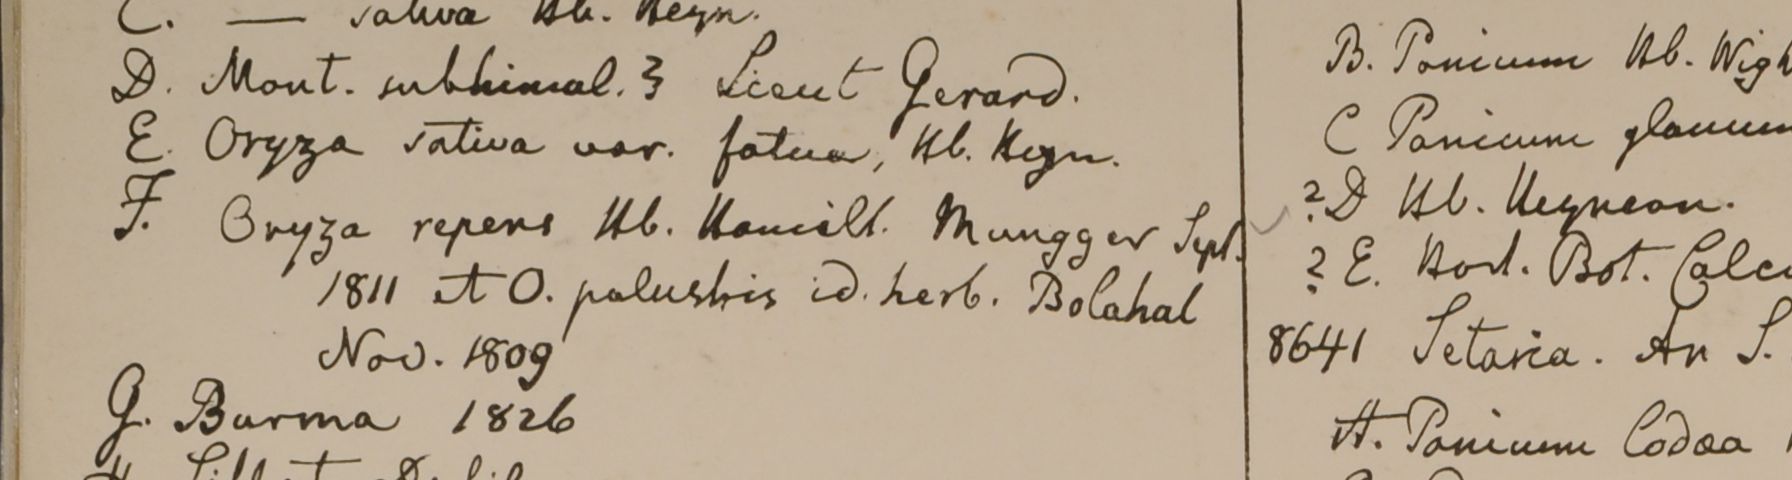 C. — sativa Hb. Heyn.
D. Mont. subhimal. 3 Lieut Gerard.
E. Oryza sativa var. fatua, Hb. Heyn.
F. Oryza repens Hb. Hamilt. Mungger Sept.
1811 et O. palustris id. herb. Bolahal
Nov. 1809
G. Burma 1826
B. Panicum Hb. Wigh
C Panicum glaucum
? D Hb. Heynean.
? E. Hort. Bot. Calcu
8641 Setaria. An S.
A. Panicum